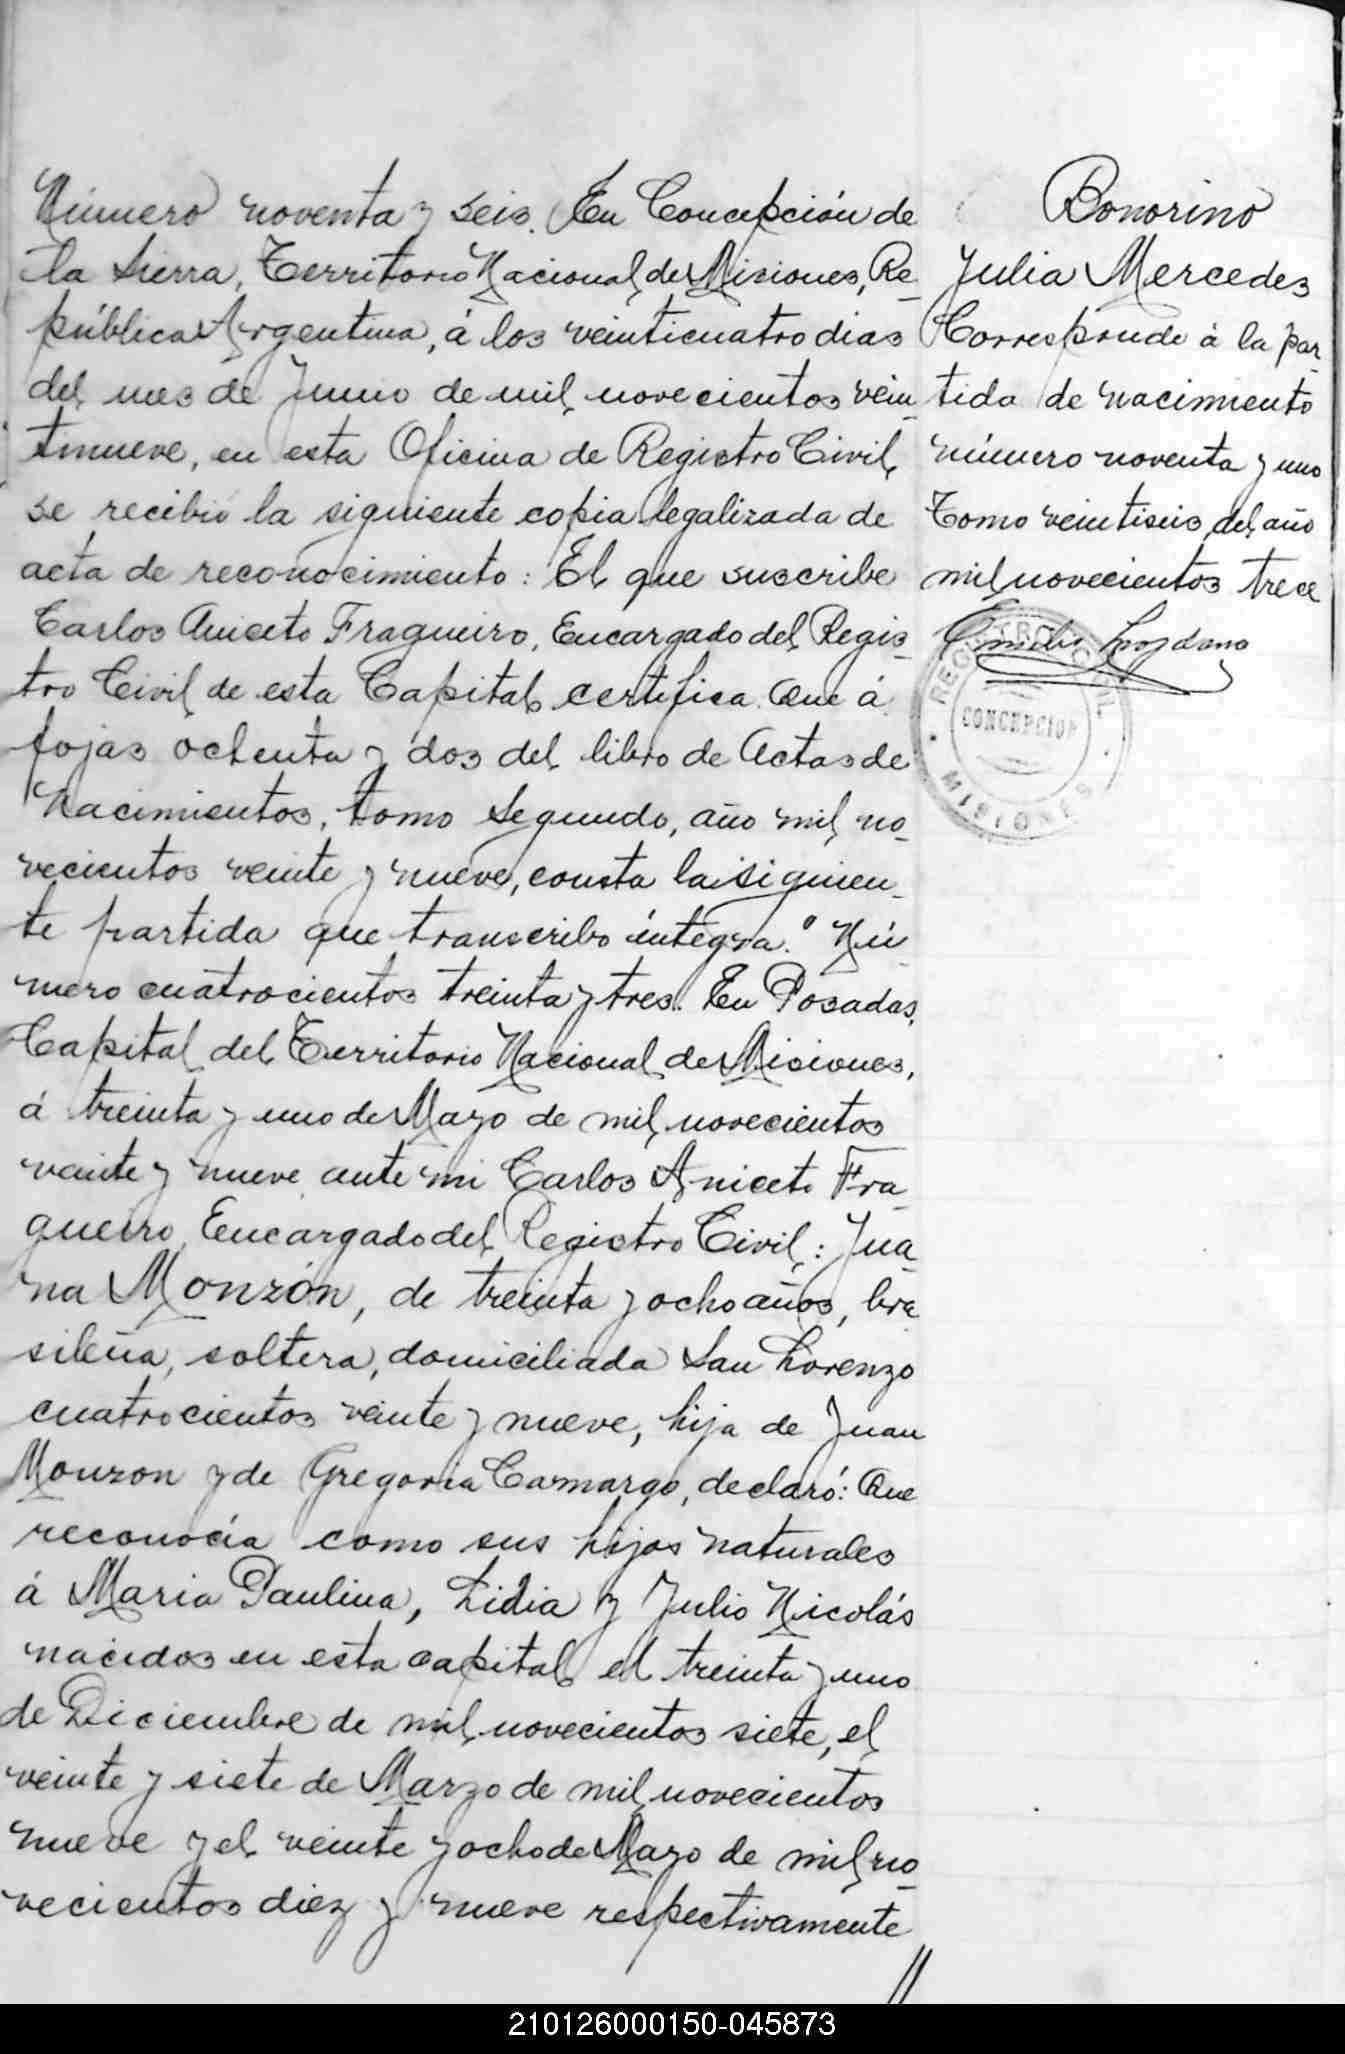 Número noventa y seis. En Concepción de
la Sierra, Territorio Nacional de Misiones, Re-
pública Argentina, á los veinticuatro dias
del mes de Junio de mil novecientos vein
tinueve, en esta Oficina de Registro Civil,
se recibió la siguiente copia legalizada de
acta de reconocimiento: El que suscribe
Carlos Aniceto Fragueiro, Encargado del Regis-
tro Civil de esta Capital certifica. Que á
fojas ochenta y dos del libro de Actas de
Nacimientos, tomo Segundo, año mil no-
vecientos veinte y nueve, consta la siguien-
te partida que transcribo íntegra." Nú-
mero cuatrocientos treinta y tres. En Posadas,
Capital del Territorio Nacional de Misiones,
á treinta y uno de Mayo de mil novecientos
veinte y nueve ante mi Carlos Aniceto Fra-
gueiro, Encargado del Registro Civil,: Jua-
na Monzón, de treinta y ocho años, bra
sileña, soltera, domiciliada San Lorenzo
cuatrocientos veinte y nueve, hija de Juan
Monzon y de Gregoria Camargo, declaró: Que
reconocía como sus hijos naturales
á Maria Paulina, Lidia y Julio Nicolás
nacidos en esta capital el treinta y uno
de Diciembre de mil novecientos siete, el
veinte y siete de Marzo de mil novecientos
nueve y el veinte y ocho de Mayo de mil no-
vecientos diez y nueve respectivamente
//
Bonorino
Julia Mercedes
Corresponde á la par-
tida de nacimiento
número noventa y uno
Tomo veintiseis del año
mil novecientos trece
REGISTRO CIVIL
CONCEPCION
MISIONES
210126000150-045873